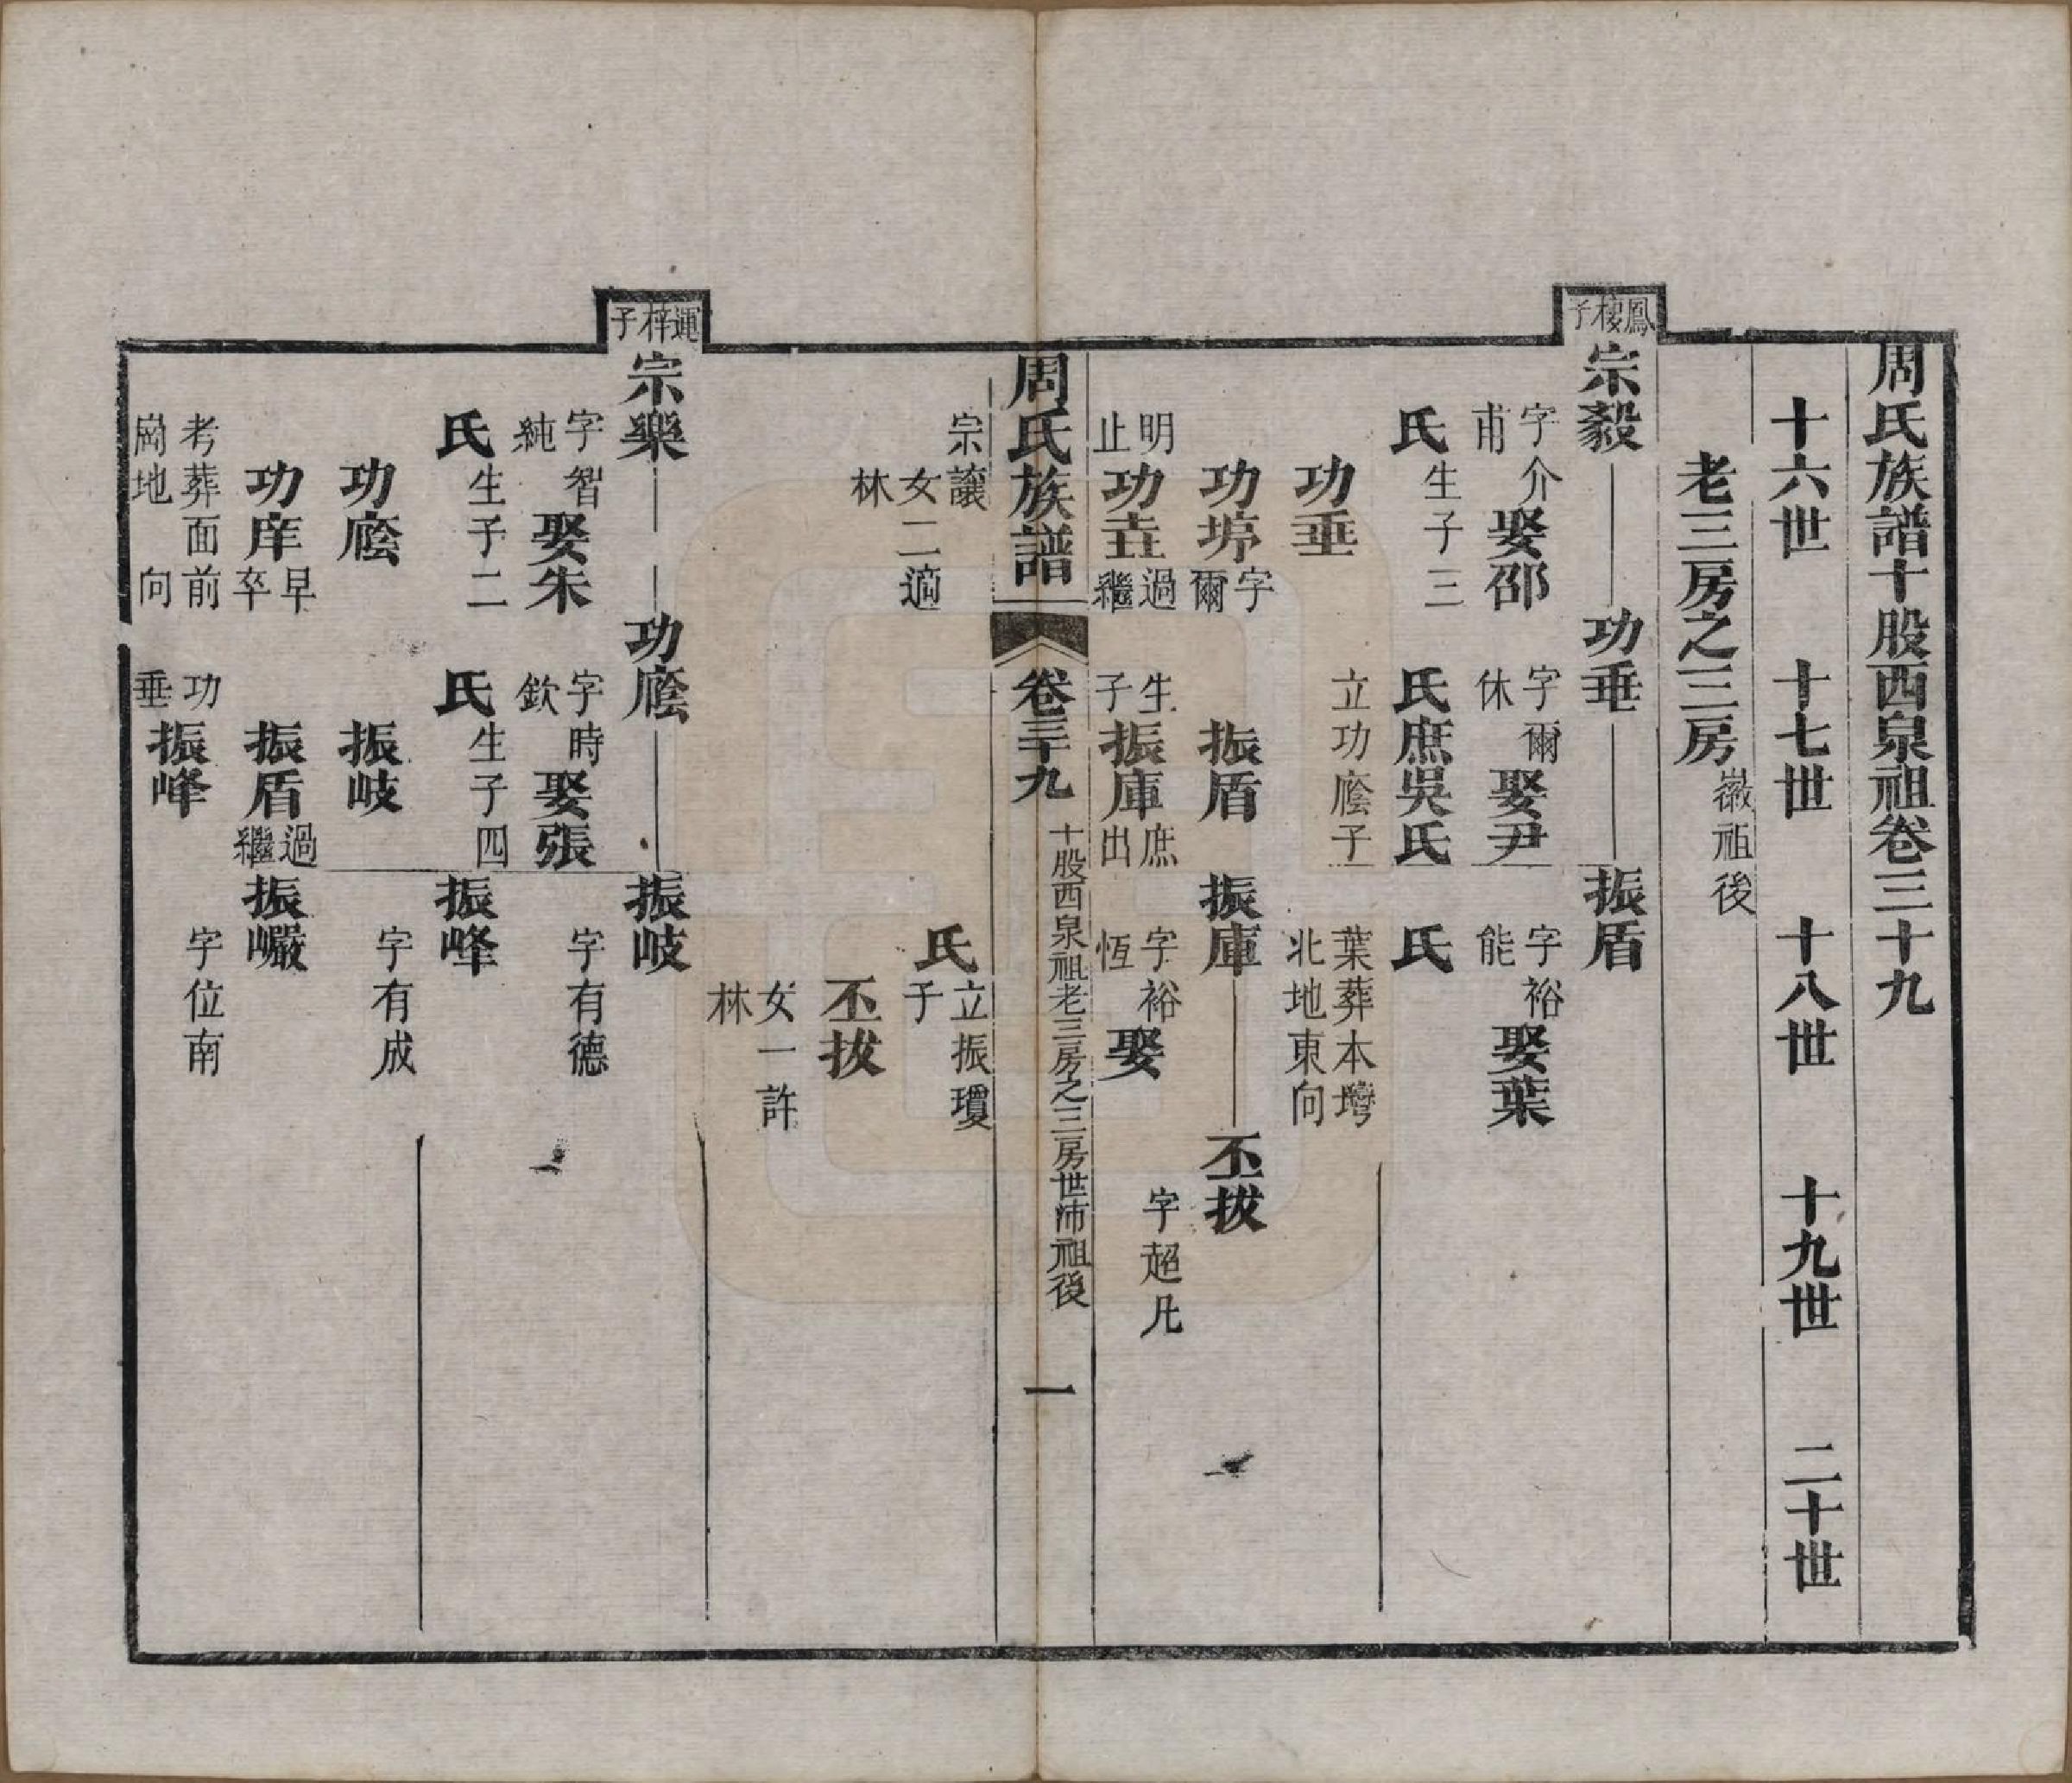 周氏族譜十股西泉祖卷三十九
十六世　十七世　十八世　十九世　二十世
老三房之三房　徽祖後
鳳棲子
宗毅　功垂　振盾
字介甫　娶邵　字爾休　娶尹　字裕能　娶葉
氏　生子三　氏庶吳氏　立功廕子　氏　葉葬本塆北地東向
功垂
功埻　字爾　振盾　振庫　丕拔
明止　功垚　過繼　生子　振庫　庶出　字裕恆　娶　字超凡
周氏族譜　卷三十九　十股西泉祖老三房之三房世沛祖後　一
宗讓　氏　立振瓊子
女二適林
丕拔
女一許林
運梓子
宗樂　功廕　振岐
字智純　娶朱　字時欽　娶張　字有德
氏　生子二　氏　生子四　振峰
功廕　振岐　字有成
功庠　早卒　振盾　過繼　振巗
考葬面前崗地　向　功垂　振峰　字位南